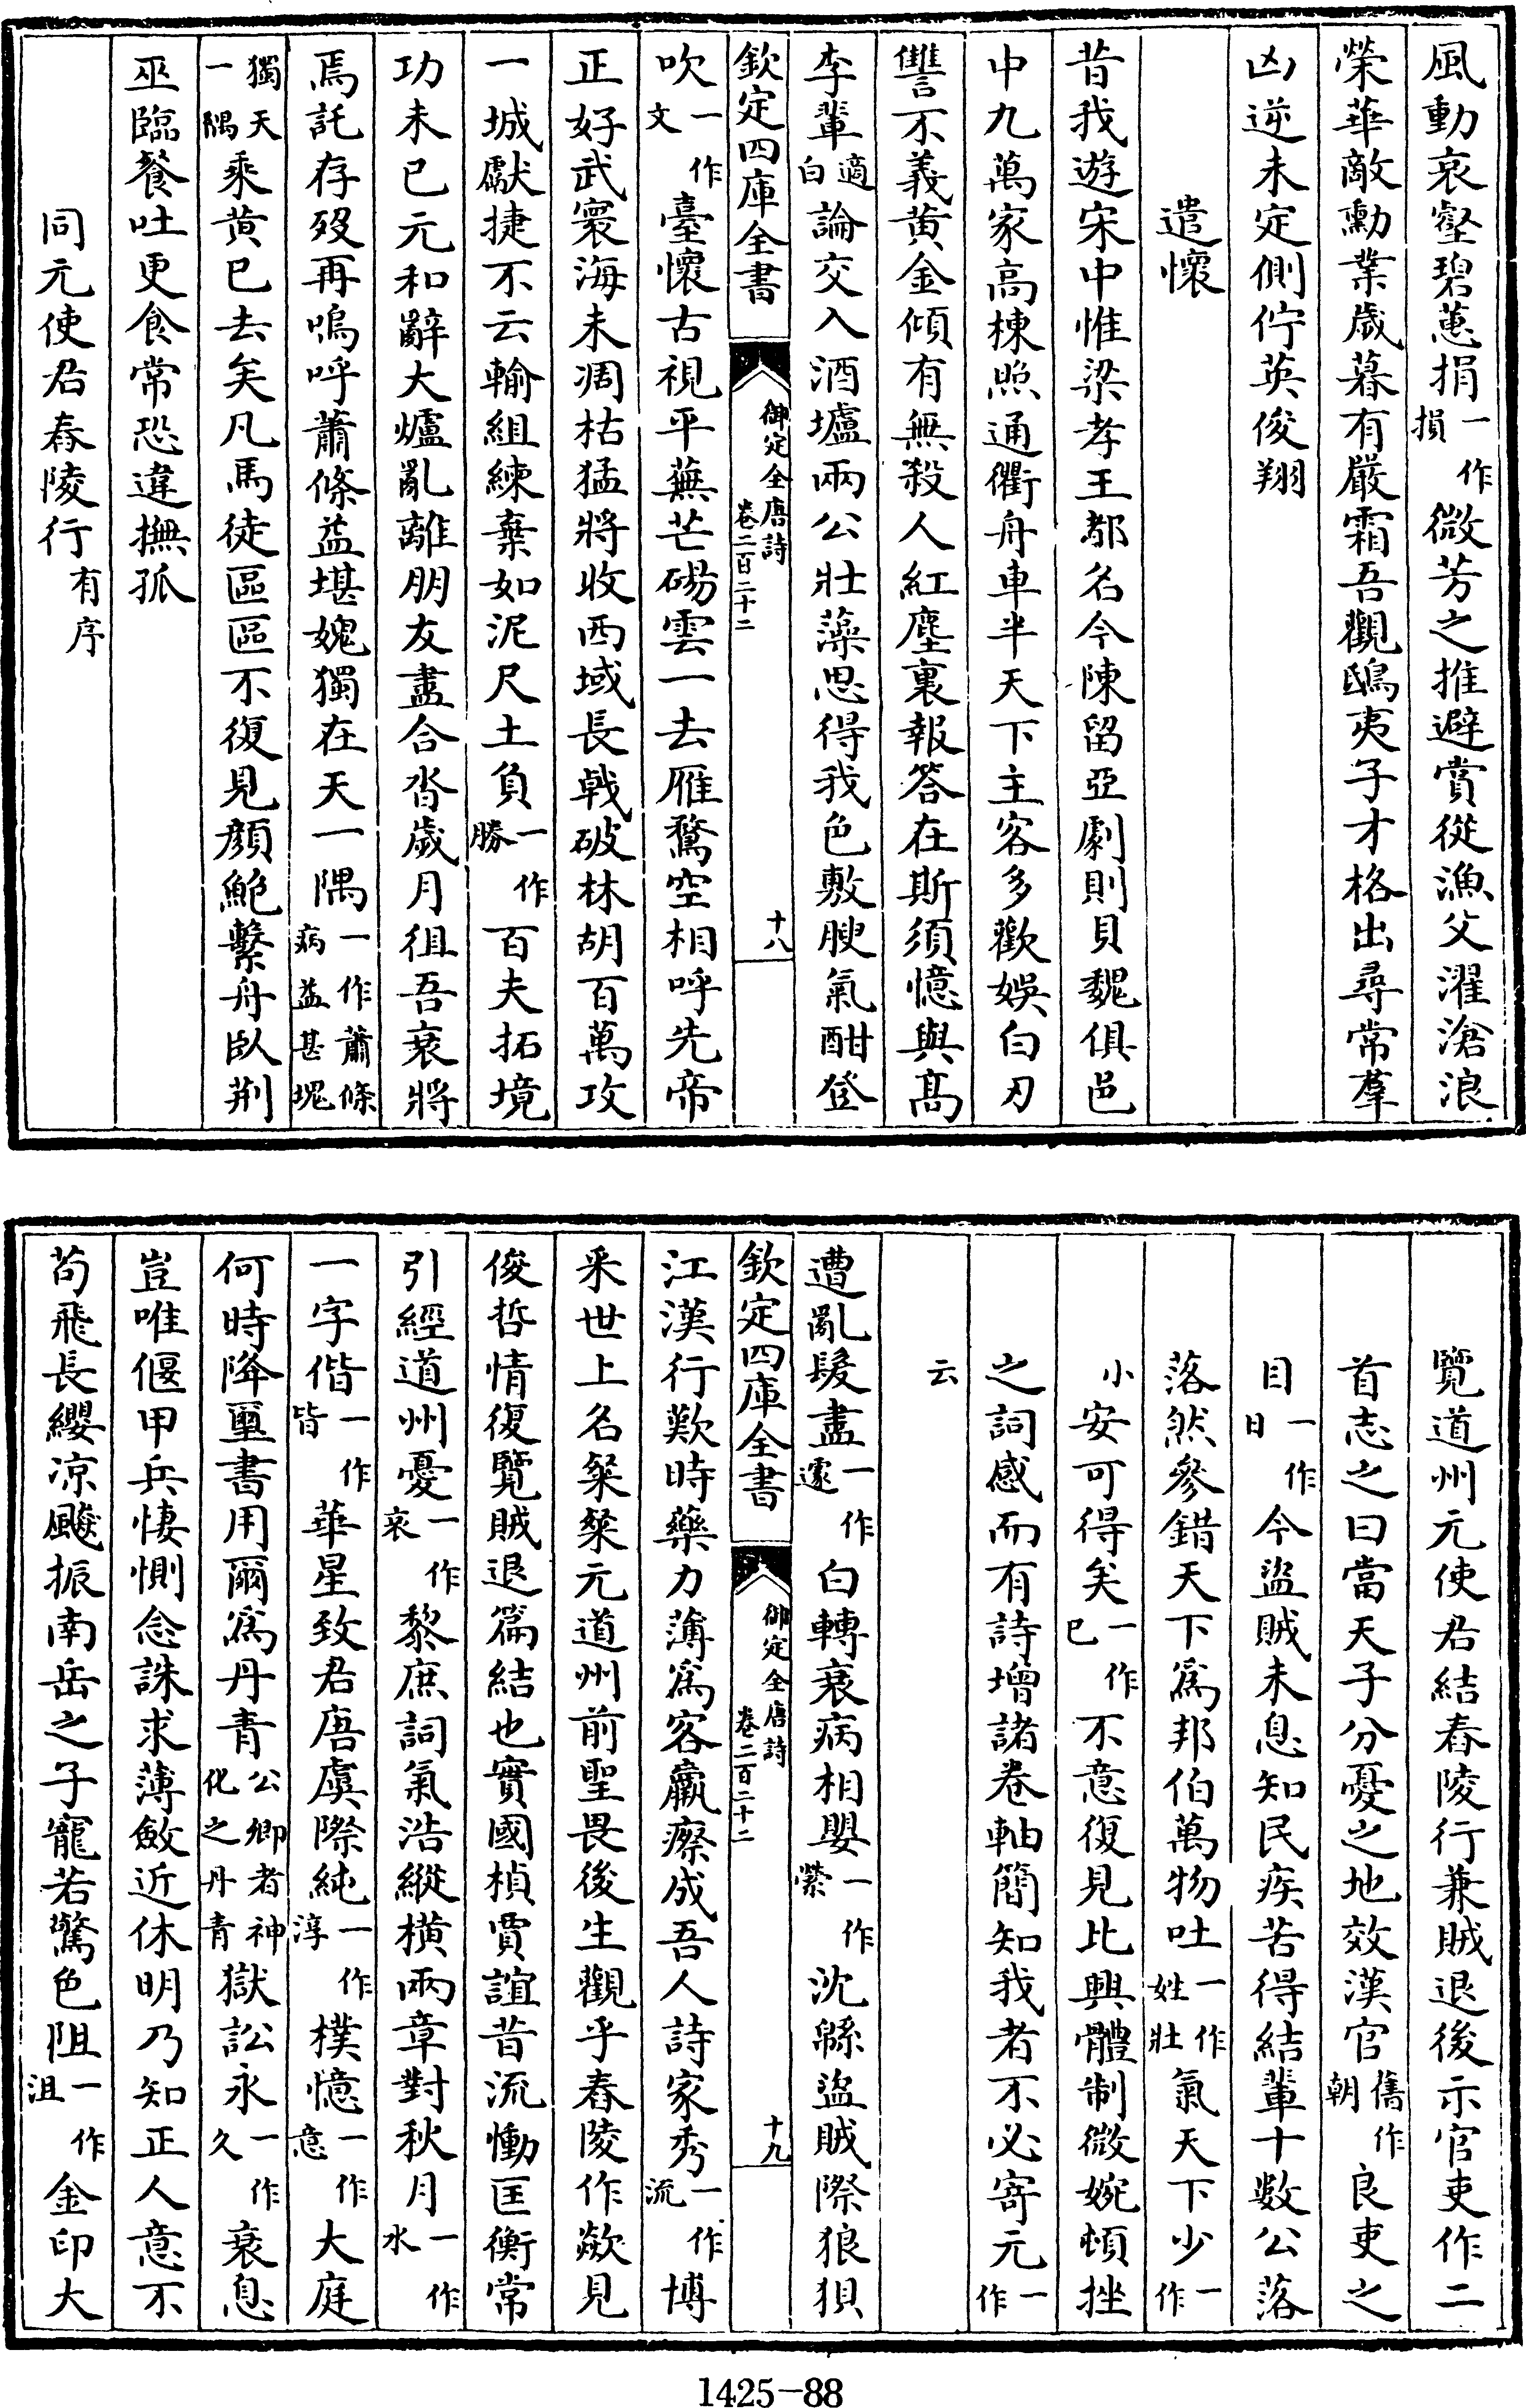 風動哀壑碧蕙捐一作損微芳之推避賞從漁父濯滄浪
榮華敵勳業歲暮有嚴霜吾觀鴟夷子才格出尋常羣
凶逆未定側佇英俊翔
遣懷
昔我遊宋中惟梁孝王都名今陳留亞劇則貝魏俱邑
中九萬家高棟照通衢舟車半天下主客多歡娛白刃
讐不義黃金傾有無殺人紅塵裏報答在斯須憶與高
李輩適白論交入酒壚兩公壯藻思得我色敷腴氣酣登
欽定四庫全書
御定全唐詩
卷二百二十二
十八
吹一作文臺懷古視平蕪芒碭雲一去雁鶩空相呼先帝
正好武寰海未凋枯猛將收西域長戟破林胡百萬攻
一城獻捷不云輸組練棄如泥尺土負一作勝百夫拓境
功未已元和辭大爐亂離朋友盡合沓歲月徂吾衰將
焉託存歿再嗚呼蕭條益堪媿獨在天一隅一作蕭條病益甚塊
獨天一隅乘黃已去矣凡馬徒區區不復見顏鮑繫舟臥荆
巫臨餐吐更食常恐違撫孤
同元使君舂陵行有序
覽道州元使君結舂陵行兼賊退後示官吏作二
首志之曰當天子分憂之地效漢官舊作朝良吏之
目一作日今盜賊未息知民疾苦得結輩十數公落
落然參錯天下為邦伯萬物吐一作姓壯氣天下少一作
小安可得矣一作已不意復見比興體制微婉頓挫
之詞感而有詩增諸卷軸簡知我者不必寄元一作
云
遭亂髮盡一作遽白轉衰病相嬰一作縈沈緜盜賊際狼狽
欽定四庫全書
御定全唐詩
卷二百二十二
十九
江漢行歎時藥力薄為客羸瘵成吾人詩家秀一作流博
采世上名粲粲元道州前聖畏後生觀乎舂陵作歘見
俊哲情復覽賊退篇結也實國楨賈誼昔流慟匡衡常
引經道州憂一作哀黎庶詞氣浩縱橫兩章對秋月一作水
一字偕一作皆華星致君唐虞際純一作淳樸憶一作意大庭
何時降璽書用爾為丹青公卿者神化之丹青獄訟永一作久衰息
豈唯偃甲兵悽惻念誅求薄斂近休明乃知正人意不
苟飛長纓涼飇振南岳之子寵若驚色阻一作沮金印大
1425-88